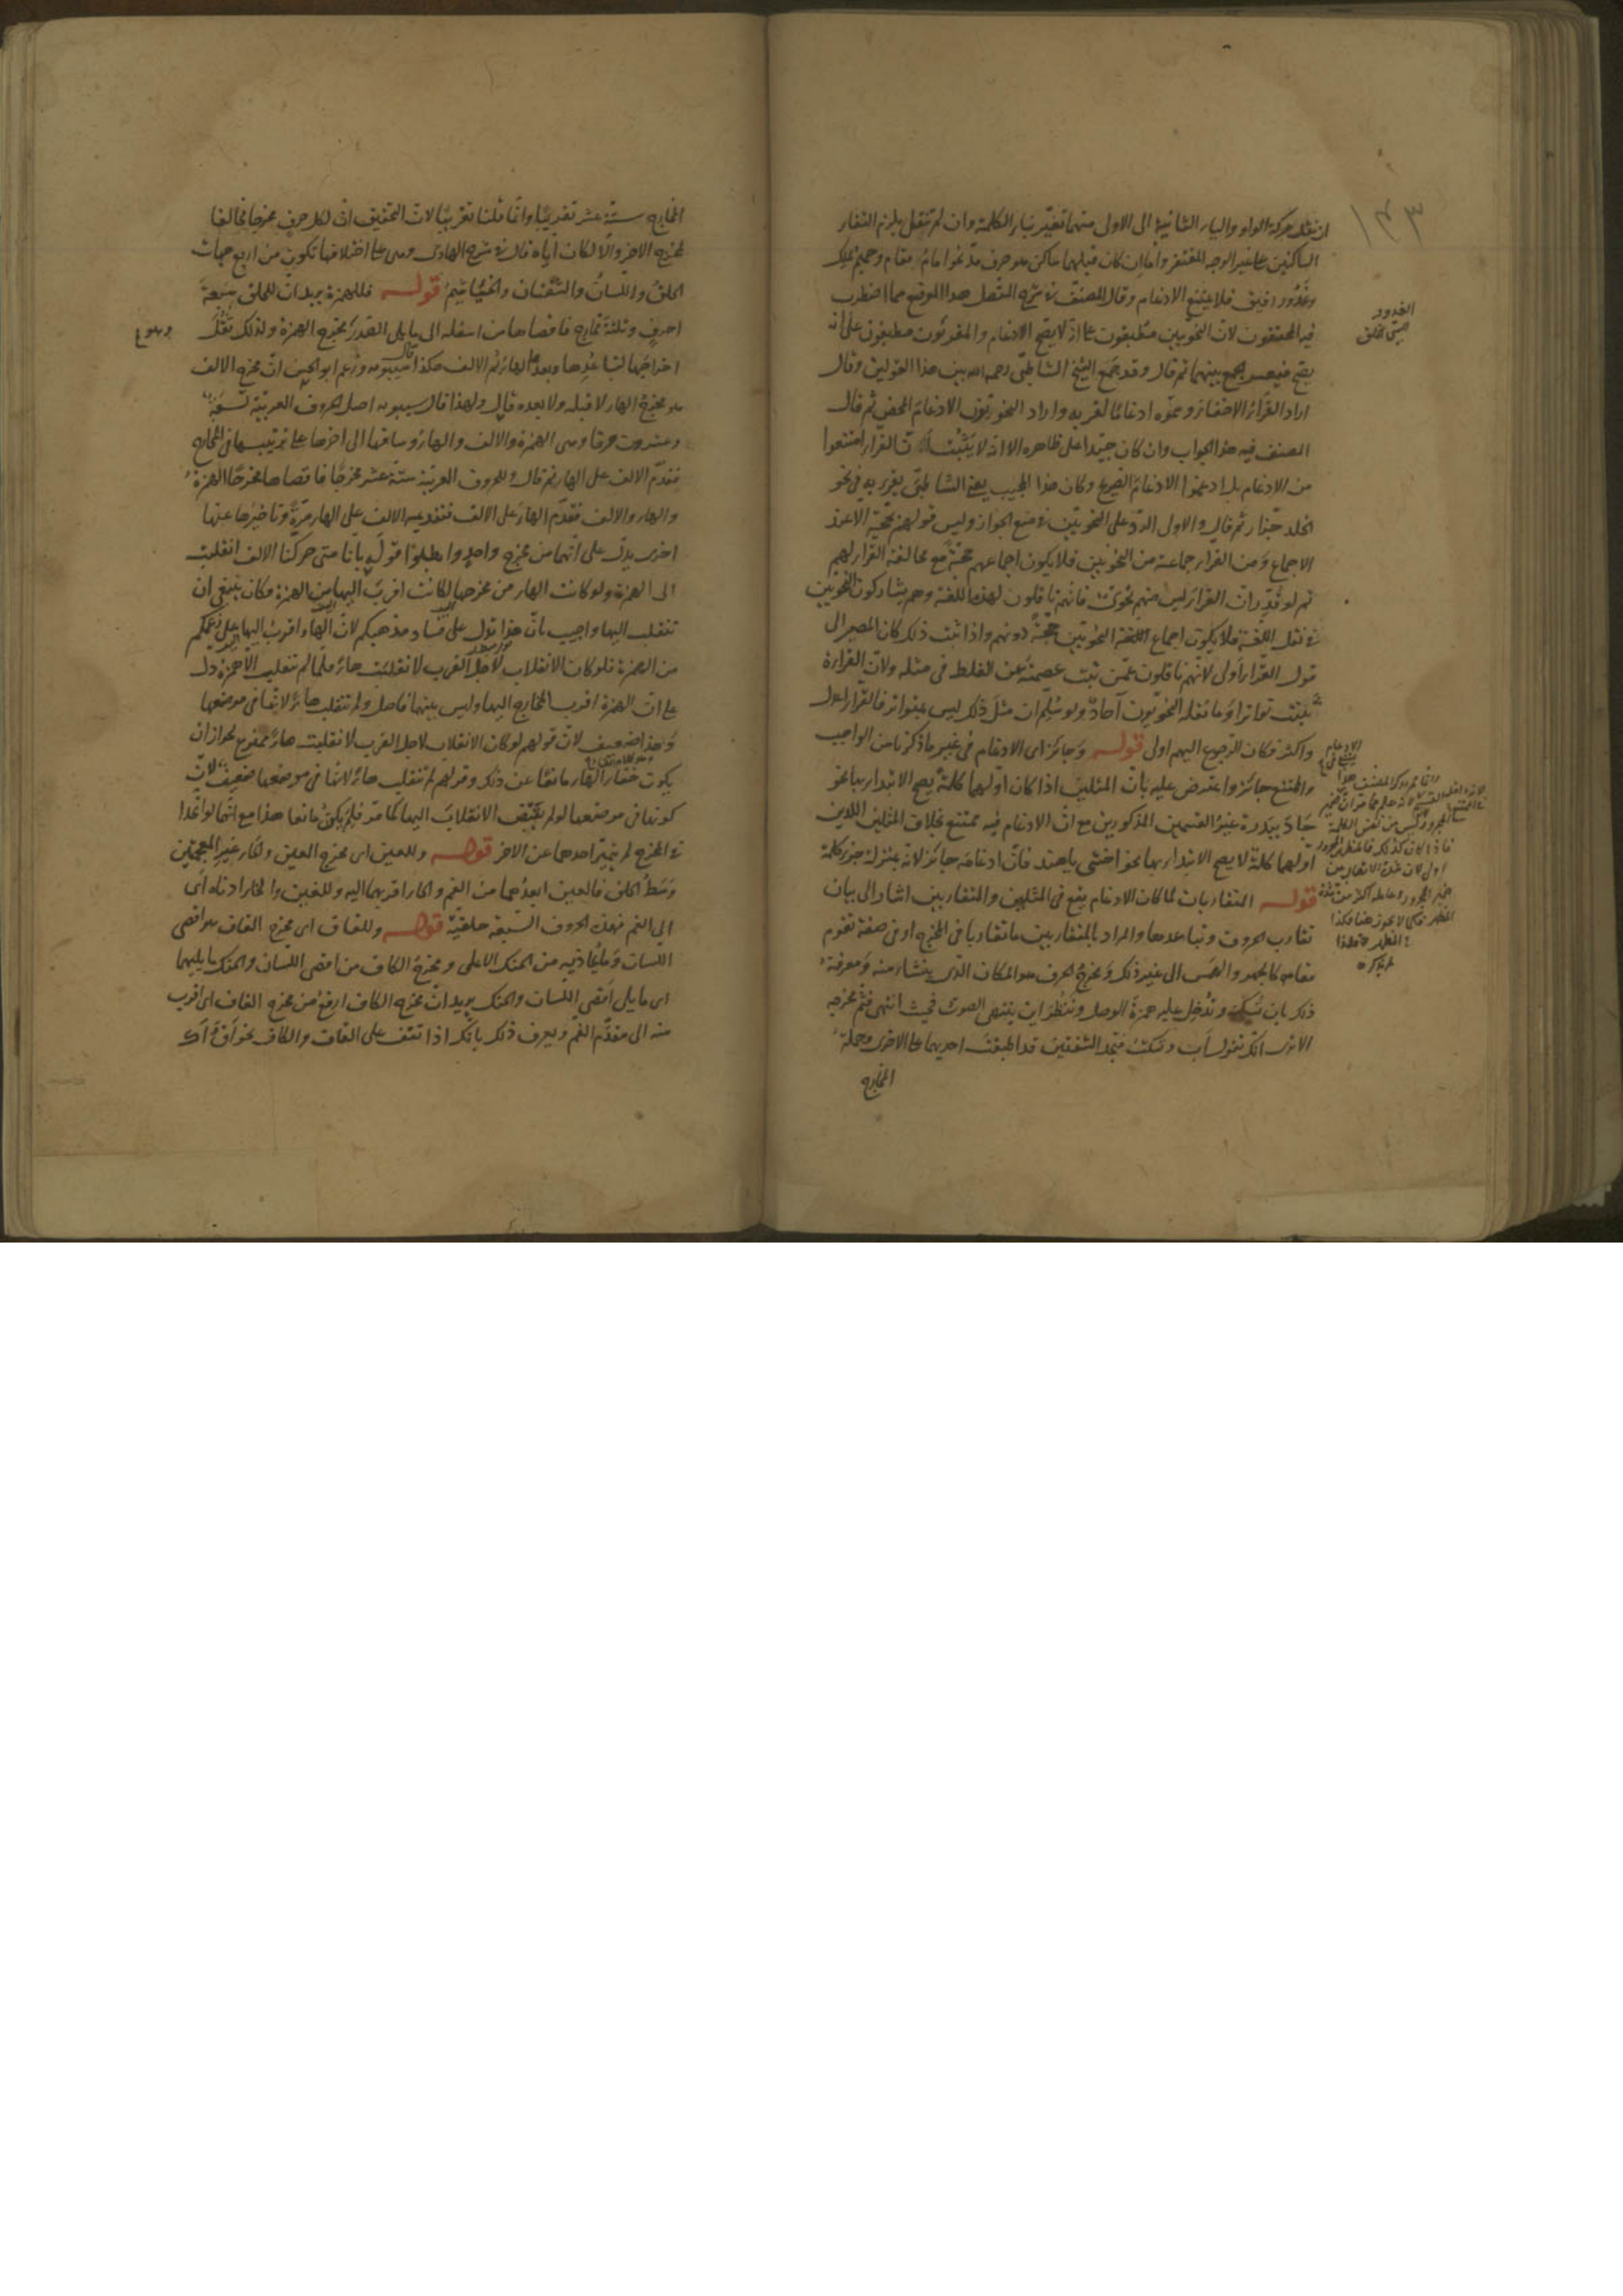 ان نقل حركة الواو والياء الثانية الى الاولى منهما تغيّر بناء الكلمة وان لم تنقل يلزم التقاء
الساكنين على غير الوجه المغتفر واما ان كان قبلهما ساكن هو حرف مدّ نحو امام مقام وحميم ملك
فلا يمتنع الادغام وقال المصنّف في شرح المفصل هذا الموضع مما اضطرب
فيه المحققون لانّ النحويين مطبقون على انه لا يصح الادغام والمقرئون مطبقون على انه
يصح فيعسر الجمع بينهما ثم قال وقد جمع الشيخ الشاطبى رحمه الله بين هذا القولين وقال
اراد القرّاء الاخفاء وسمّوه ادغامًا لقربه واراد النحويّون الادغام المحض ثم قال
المصنف فيه هذا الجواب وان كان جيّدا على ظاهره الا انه لا يثبت انّ القراء امتنعوا
من الادغام بل ادغموا الادغام الصريح وكان هذا المجيب يعنى الشاطبىّ يقرئ به فى نحو
الخلد جّزاء ثم قال والاولى الردّ على النحويّين فى منع الجواز وليس قولهم بحجّة الا عند
الاجماع ومن القراء جماعة من النحويين فلا يكون اجماعهم حجّة مع مخالفة القراء لهم
ثم لو قدّر ان القرّاء ليس منهم نحوىّ فانهم ناقلون لهذه اللغة وهم يشاركون النحويّين
فى نقل اللغة فلا يكون اجماع النحويّين حجّة دونهم واذا ثبت ذلك كان المصير الى
قول القرّاء اولى لانّهم ناقلون عمّن ثبت عصمته عن الغلط فى مثله ولانّ القراءة
ثبتت تواترا وما نقله النحويّون آحاد ولو سُلّم ان مثل ذلك ليس بمتواتر فالقرّاء اعدل
واكثر فكان الرجوع اليهم اولى قوله وجائز اى الادغام فى غير ما ذكرنا من الواجب
والممتنع جائز واعترض عليه بانّ المثلين اذا كان اولهما كلمة يصح الابتداء بها نحو
جاد ببدرة غير القسمين المذكورين مع انّ الادغام فيه ممتنع بخلاف المثلين اللذين
اولهما كلمة لا يصح الابتداء بها نحو اخشى ياهند فانّ ادغامه جائز لانّه بمنزلة جزء كلمة
قوله المتقاربان لما كان الادغام يقع فى المثلين والمتقاربين اشار الى بيان
تقارب الحروف وتباعدها والمراد بالمتقاربين ما تقاربا فى المخرج او فى صفة تقوم
مقامه كالجهر والهمس الى غير ذلك ومخرج الحرف هو المكان الذى ينشأ منه ومعرفة
ذلك بان تسكّنه وتُدخل عليه همزة الوصل وتنظر اين ينتهى الصوت فحيث انتهى فثمّ مخرجه
الا ترى انك تقول اب وتسكت فتجد الشفتين قد اطبقت احديهما على الاخرى وجملة
المخارج
المخارج ستة عشر تقريبًا وانّما قلنا تقريبًا لانّ التحقيق انّ لكل حرف مخرجا مخالفا
لمخرج الآخر والّا لكان ايّاه قال فى شرح الهادى وهى على اختلافها تكون من اربع جهات
الحلق واللسان والشفتان والخياشيم قوله فللهمزة يريد انّ للحلق سبعة
احرف وثلثة مخارج فاقصاها من اسفله الى ما يلى الصدر مخرج الهمزة ولذلك ثقل
اخراجها لتباعدها وبعدها الهاء ثم الالف هكذا قال سيبويه وزعم ابو الحسن انّ مخرج الالف
هو مخرج الهاء لا قبله ولا بعده قال ولهذا قال سيبويه اصل الحروف العربيّة تسعة
وعشرون حرفا وهى الهمزة والالف والهاء وساقها الى آخرها على ترتيبها فى المخارج
فقدّم الالف على الهاء ثم قال وللحروف العربيّة ستة عشر مخرجًا فاقصاها مخرجًا الهمزة
والهاء والالف فقدّم الهاء على الالف فتقديم الالف على الهاء مرّة وتأخيرها عنها
اخرى يدلّ على انهما من مخرج واحد وابطلوا قوله بانّا متى حركنا الالف انقلبت
الى الهمزة ولو كانت الهاء من مخرجها لكانت اقرب اليها من الهمزة فكان ينبغى ان
تنقلب اليها واجيب بانّ هذا يدل على فساد مذهبكم لانّ الهاء اقرب اليها على زعمكم
من الهمزة فلو كان الانقلاب لاجل القرب لانقلبت هاءً فلمّا لم تنقلب الّا همزة دل
على انّ الهمزة اقرب المخارج اليها وليس بينهما فاصل ولم تنقلب هاءً لانّها فى موضعها
وهذا ضعيف لانّ قولهم لو كان الانقلاب لاجل القرب لانقلبت هاءً ممنوع لجواز ان
يكون خفاء الهاء مانعًا عن ذلك وقولهم لم تنقلب هاءً لانّها فى موضعها ضعيف لانّ
كونها فى موضعها لو لم يقتض الانقلاب اليها كما مرّ فلم يكن مانعا هذا مع انّهما لو اتّحدا
فى المخرج لم يتميّز احدهما عن الآخر قوله وللعين اى مخرج العين والحاء غير المعجمتين
وسط الحلق فالعين ابعدهما من الفم والحاء اقربهما اليه وللغين والخاء ادناه اى
الى الفم فهذه الحروف السبعة حلقيّة قوله وللقاف اى مخرج القاف هو اقصى
اللسان وما يحاذيه من الحنك الاعلى ومخرج الكاف من اقصى اللسان والحنك ما يليهما
اى ما يلى اقصى اللسان والحنك يريد انّ مخرج الكاف ارفع من مخرج القاف اى اقرب
منه الى مقدّم الفم ويعرف ذلك بانّك اذا تقف على القاف والكاف نحو اَقْ اَكْ